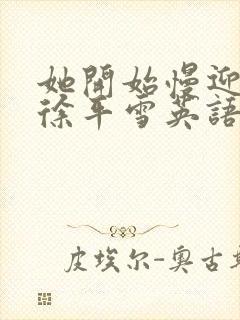 她開始慢迎
徐平雪英語
皮埃尔-奥古